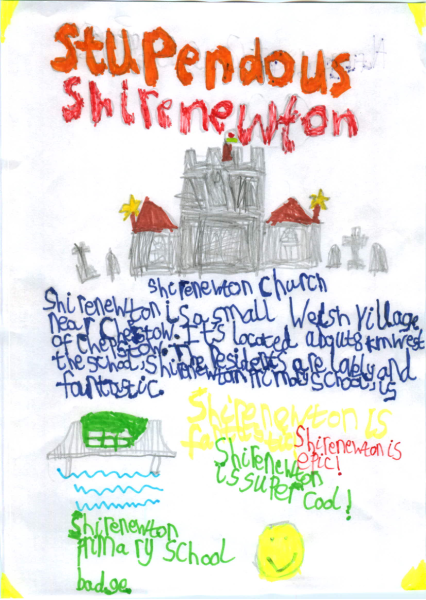 Stupendous
Shirenewton
Shirenewton Church
Shirenewton is a small Welsh village
near Chepstow. It is located about 8 km west
of Chepstow. The residents are lably and
the school is Shirenewton Primary School is
fantastic.
Shirenewton is
fantastic
Shirenewton is
epic!
Shirenewton
is super cool!
Shirenewton
Primary School
badge